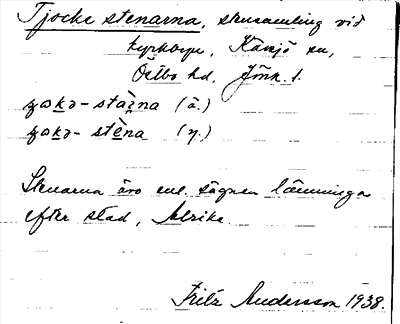 Tjocke stenarna, stensamling vid
kyrkbyn, Kävsjö sn,
Östbo hd, Jönk. l.
ʒokə-stàɪna (ä.)
ʒokə-stèna (y.)
Stenarna äro enl. sägnen lämningar
efter stad,
Fritz Andersson 1938.